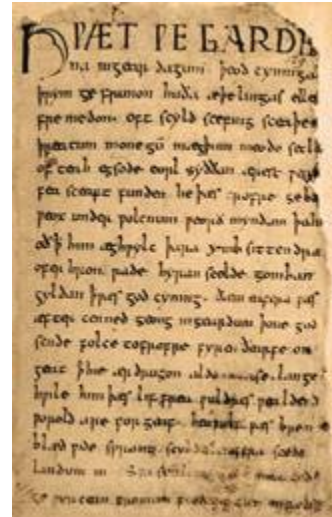 HǷÆT ǷE GARDE
na ingear dagum þeod cyninga
þrym ge frunon huða æþelingas elle
fre medon. oft scyld scefing sceaþe
þreatum monegū mægþum meodo setla
of teah egsode eorl syððan ærest ƿear
fea sceaft funden he þæs frofre geba
ƿeox under ƿolcnum ƿeorð myndum þah
oð þꝥ him æghƿylc þara ymb sittendra
ofer hron rade hyran scolde gomban
gyldan ꝥ ƿæs god cyning. ðæm eafera ƿæs
æfter cenned geong ingeardum þone god
sende folce tofrofre fyren ðearfe on
geat ꝥ hie ær drugon aldor ase. lange
hƿile him þæs lif frea ƿuldres ƿealdend
ƿorold are for geaf. beoƿulf ƿæs breme
blæd ƿide sprang scyldes eafera scede
landum in. Sƿa sceal
ge ƿyrcean fromum feoh giftum